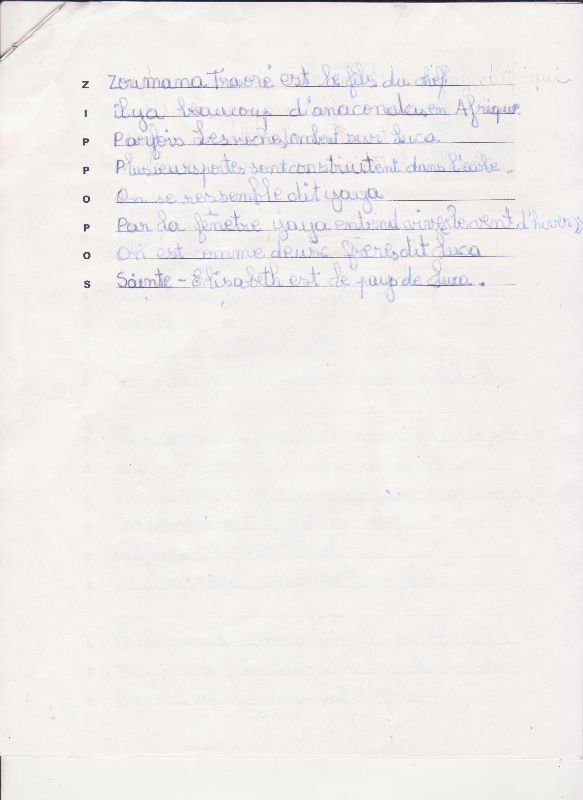 Z Zoumana Traoré est le fils du chef d'Afrique
I il ya beaucoup d'anacondas, en Afrique.
P Parfois les roches tombent sur Luca
P Plusieurs portes sont construitent dans l'arbre.
O On se ressemble dit yaya
P Par la fenêtre yaya entend vivre le vent d'hiver
O On est comme deux frères, dit Luca
S Sainte-Elisabeth est le pays de Luca.